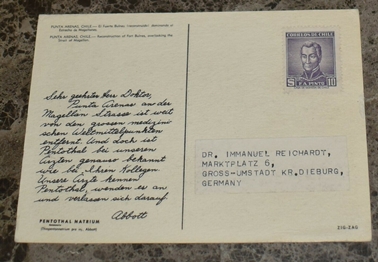 PUNTA ARENAS, CHILE.— El Fuerte Bulnes, reconstruido, dominando el
Estrecho de Magallanes.
PUNTA ARENAS, CHILE.— Reconstruction of Fort Bulnes, overlooking the
Strait of Magellan.
CORREOS DE CHILE
$ 10
Sehr geehrter Herr Doktor,
Punta Arenas an der
Magellan Strasse ist weit
von den grossen medizini
schen Weltmittelpunkten
entfernt. Und doch ist
Pentothal bei unseren
Ärzten genauer bekannt
wie bei Ihren Kollegen.
Unsere Ärzte kennen
Pentothal, wenden es an
und verlassen sich darauf.
Abbott
DR. IMMANUEL REICHARDT,
MARKTPLATZ 6,
GROSS-UMSTADT KR.DIEBURG,
GERMANY
PENTOTHAL NATRIUM